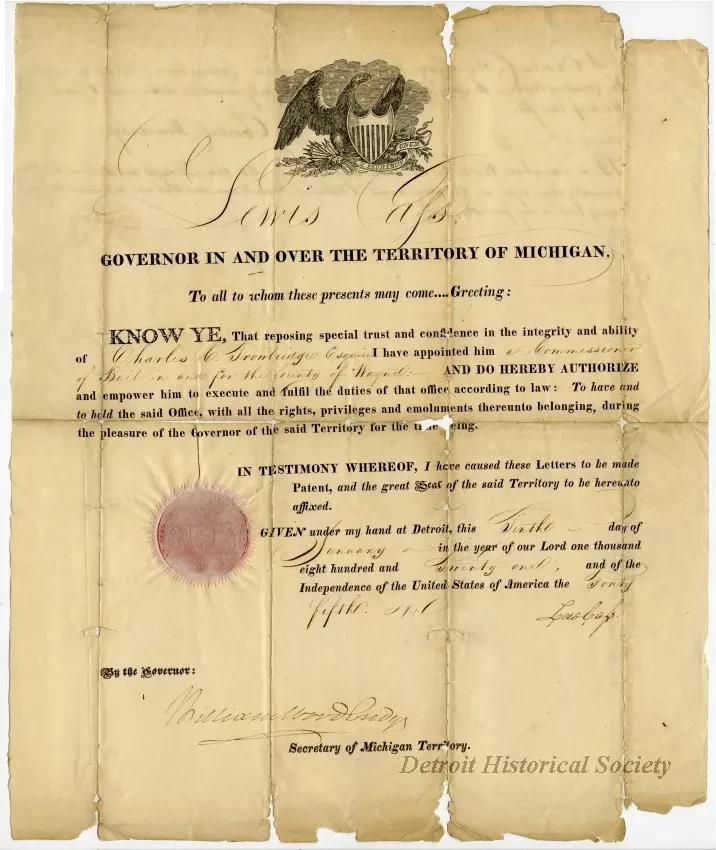 Lewis Cass.
GOVERNOR IN AND OVER THE TERRITORY OF MICHIGAN.
To all to whom these presents may come....Greeting:
KNOW YE, That reposing special trust and confidence in the integrity and ability
of Charles C. Trowbridge Esquire I have appointed him a Commissioner
of Bail in and for the County of Wayne: AND DO HEREBY AUTHORIZE
and empower him to execute and fulfil the duties of that office according to law: To have and
to hold the said Office, with all the rights, privileges and emoluments thereunto belonging, during
the pleasure of the Governor of the said Territory for the time being.
IN TESTIMONY WHEREOF, I have caused these Letters to be made
Patent, and the great Seal of the said Territory to be hereunto
affixed.
GIVEN under my hand at Detroit, this day of
January in the year of our Lord one thousand
eight hundred and Twenty one, and of the
Independence of the United States of America the Forty
fifth.
Lew Cass
By the Governor:
William Woodbridge
Secretary of Michigan Territory.
Detroit Historical Society